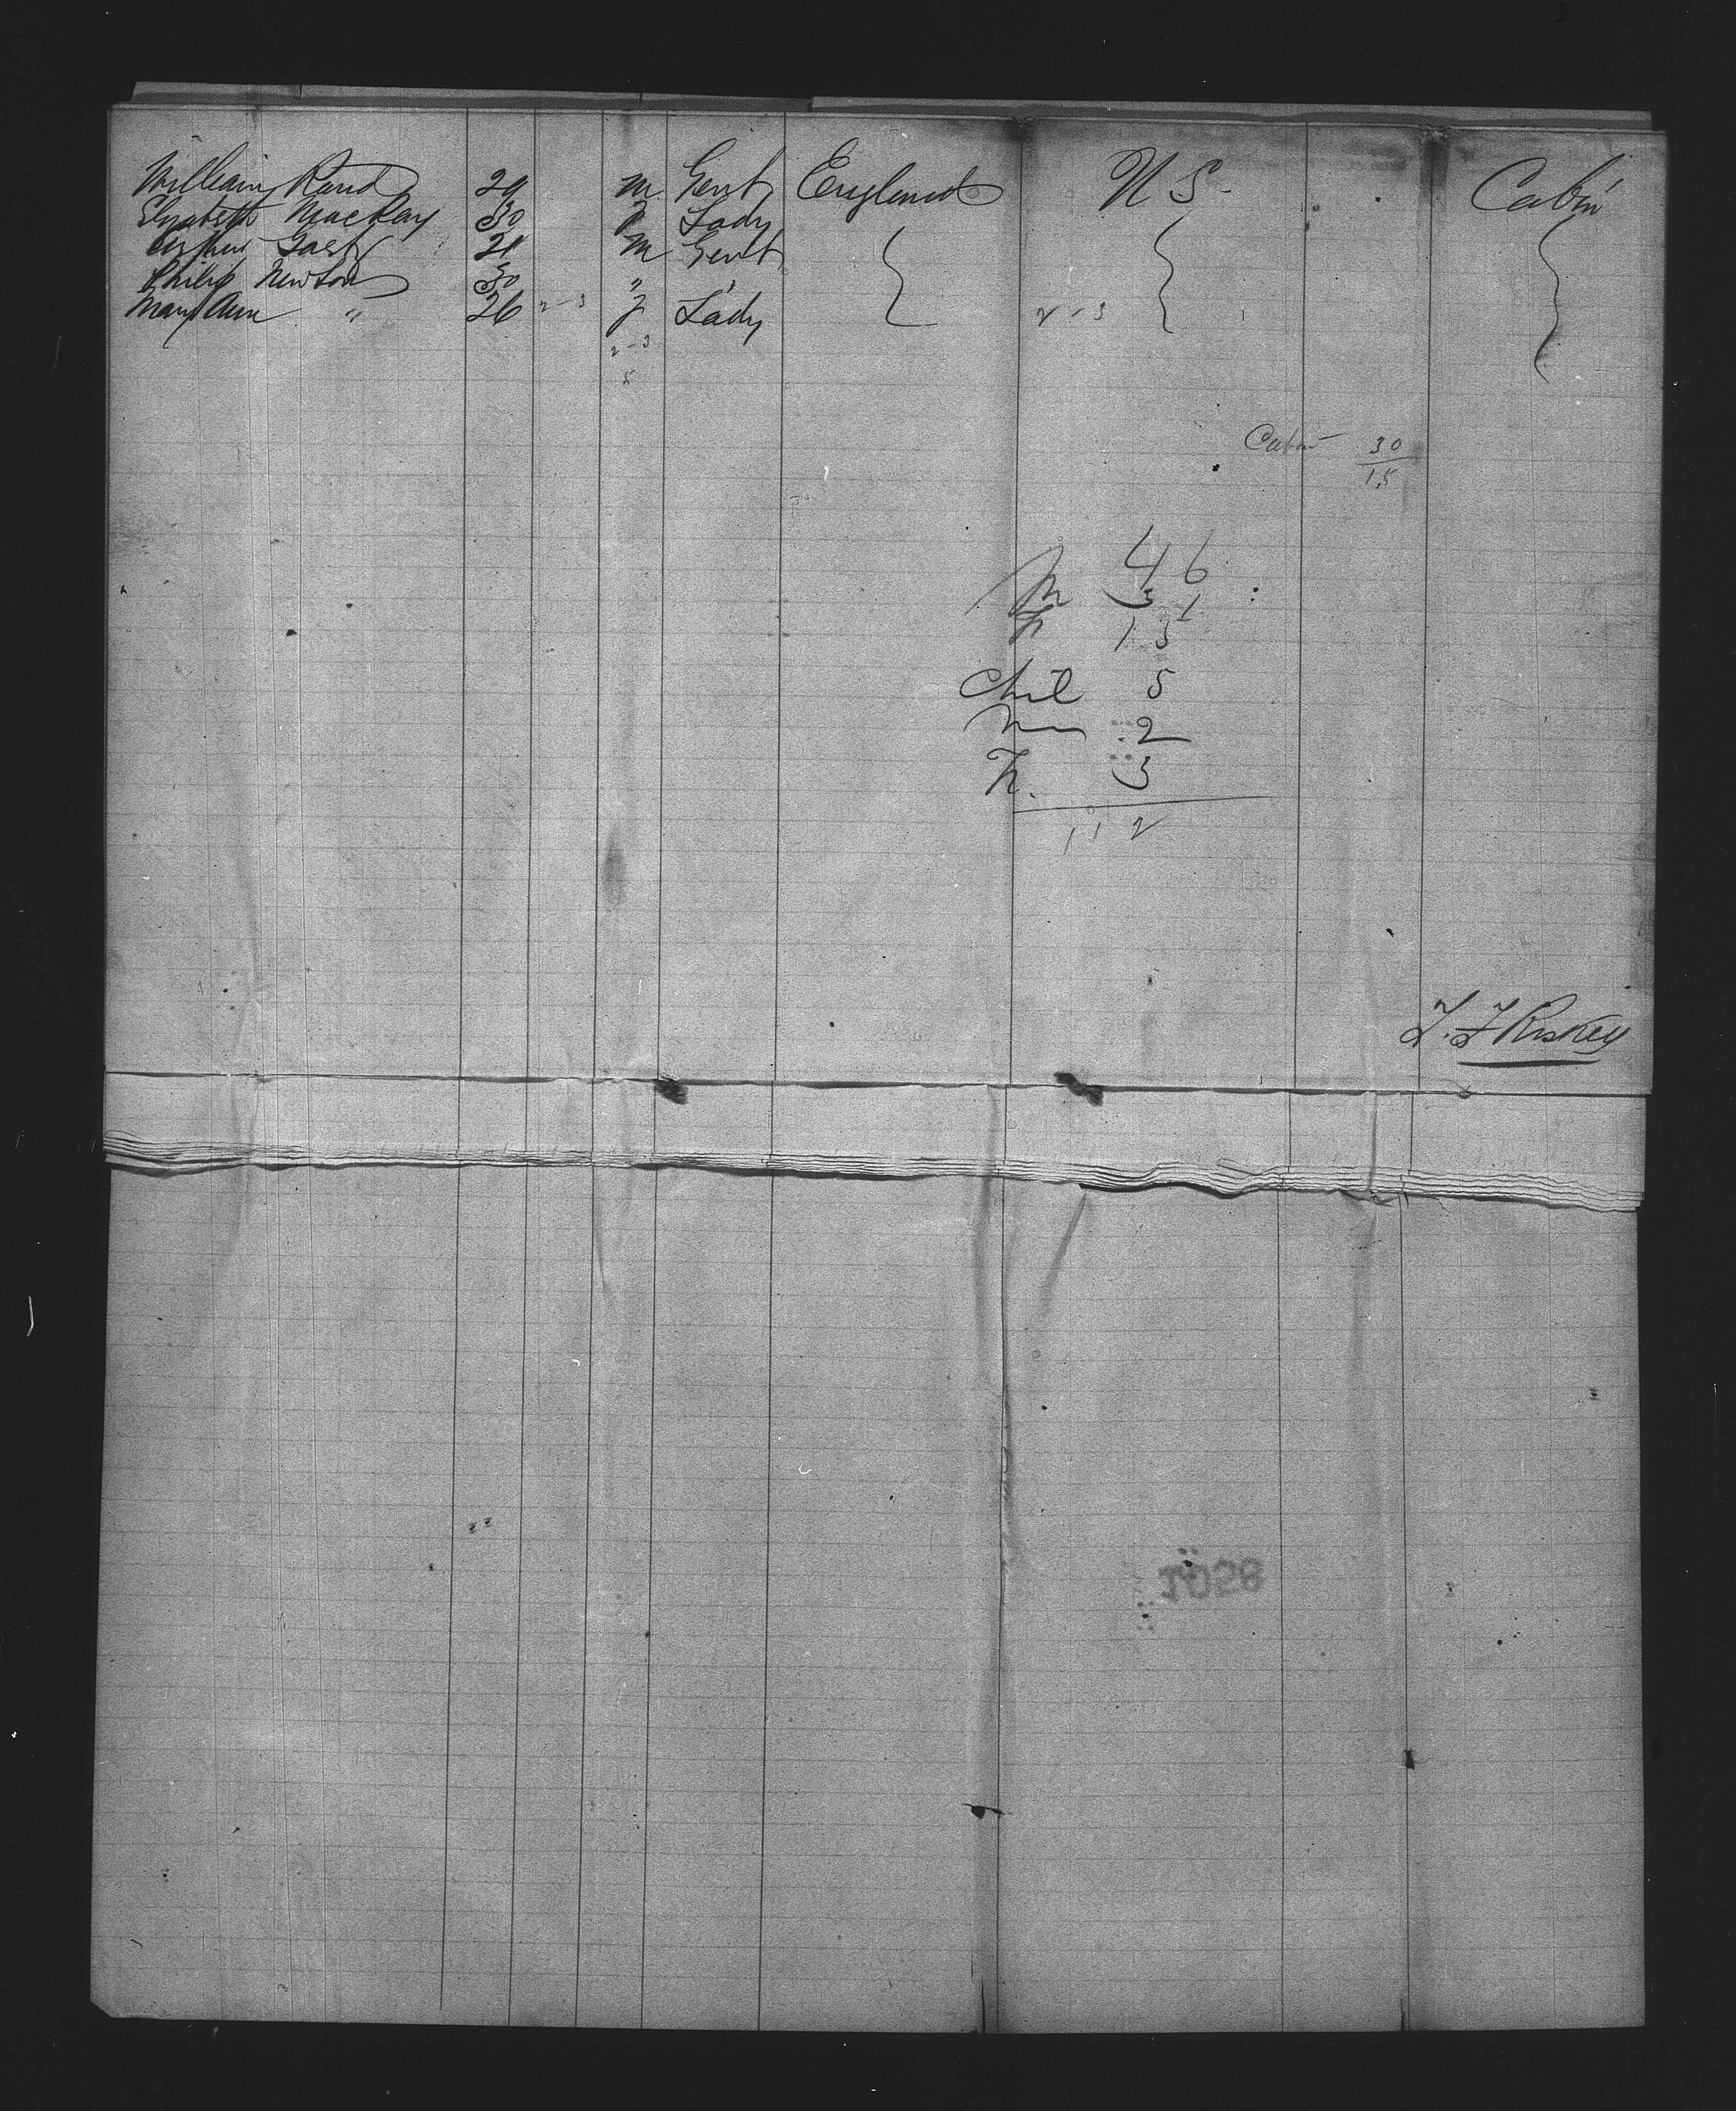 William Rand 29 m Gent England U S - Cabin
Elizabeth MacKay 30 f Lady
Arthur Gast 21 m Gent
Philip Newton 30 "
Mary Ann " 26 2-3 f Lady 2-3
2-3
5
Cabin 30
15
46
M 31
F 15
Chil 5
M 2
F. 3
112
1028